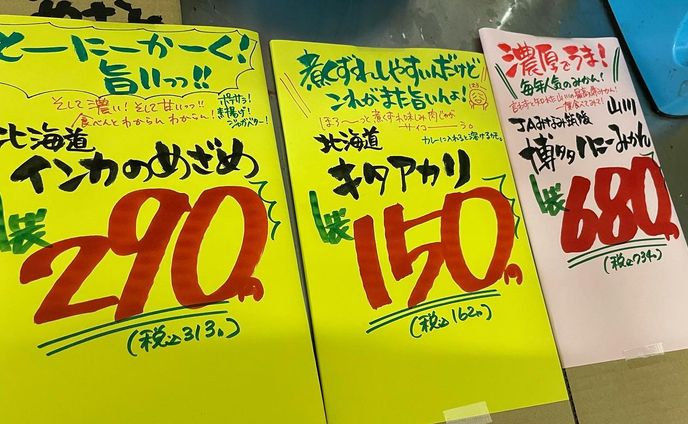 とーにーかーく!
旨いっっ!!
そして濃い!そして甘いっっ!!
食べんとわからんわからん!
ポテサラ!
素揚げ!
じゃがバター!
北海道
インカのめざめ
1袋
290円
(税込313円)
煮くずれしやすいんだけど
これがまた旨いんよ!
ほろ〜っと煮くずれ味しみ肉じゃが
サイコーーーう。
カレーに入れると溶けるぜ。
北海道
キタアカリ
1袋
150円
(税込162円)
濃厚でうま!
毎年人気のみかん!
一度食べてみて!
JAみなみ筑後
山川
博多ハニーみかん
1袋
680円
(税込734円)